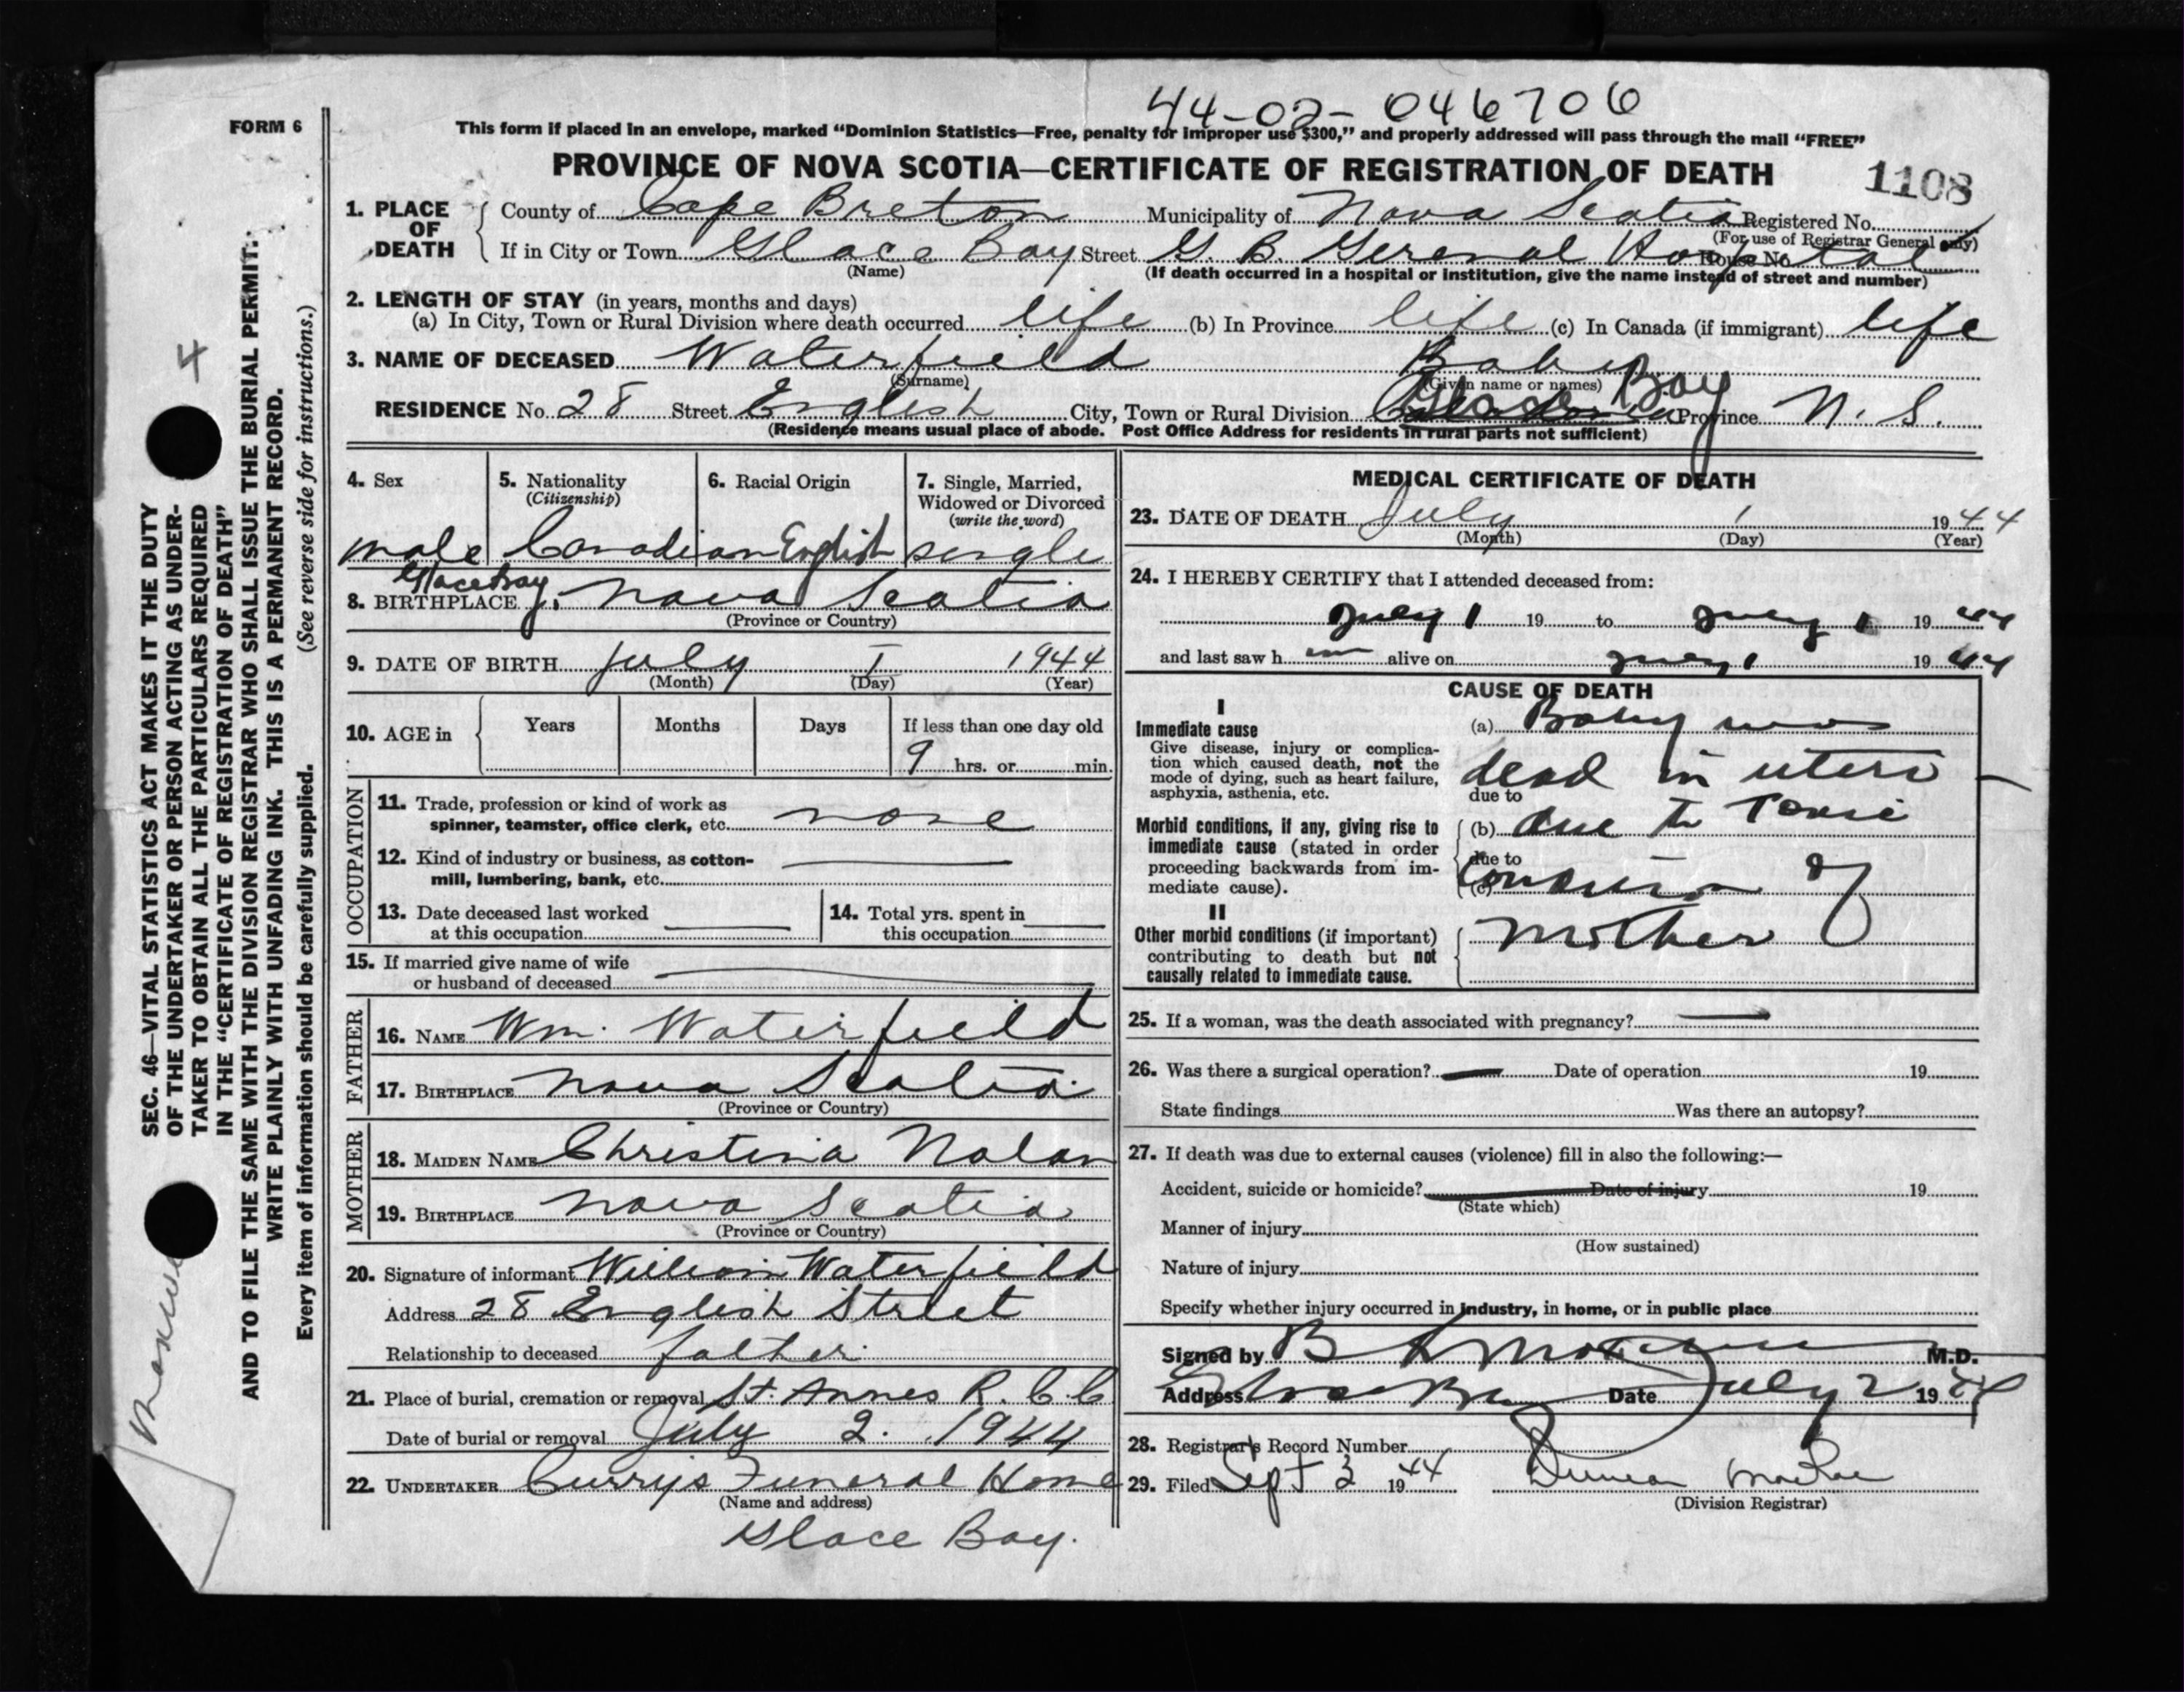 44-02-046706
FORM 6
This form if placed in an envelope, marked "Dominion Statistics—Free, penalty for improper use $300," and properly addressed will pass through the mail "FREE"
PROVINCE OF NOVA SCOTIA—CERTIFICATE OF REGISTRATION OF DEATH
1108
1. PLACE OF DEATH County of Cape Breton Municipality of Nova Scotia Registered No.
(For use of Registrar General only)
If in City or Town Glace Bay Street G. B. General Hospital House No.
(Name) (If death occurred in a hospital or institution, give the name instead of street and number)
2. LENGTH OF STAY (in years, months and days)
(a) In City, Town or Rural Division where death occurred life (b) In Province life (c) In Canada (if immigrant) life
3. NAME OF DECEASED Waterfield Baby Boy
(Surname) (Given name or names)
RESIDENCE No. 28 Street English City, Town or Rural Division Glace Province N. S.
(Residence means usual place of abode. Post Office Address for residents in rural parts not sufficient)
4. Sex male
5. Nationality (Citizenship) Canadian
6. Racial Origin English
7. Single, Married, Widowed or Divorced (write the word) single
8. BIRTHPLACE Glace Bay, Nova Scotia
(Province or Country)
9. DATE OF BIRTH July 1 1944
(Month) (Day) (Year)
10. AGE in Years Months Days If less than one day old
9 hrs. or min.
OCCUPATION
11. Trade, profession or kind of work as
spinner, teamster, office clerk, etc. none
12. Kind of industry or business, as cotton-
mill, lumbering, bank, etc.
13. Date deceased last worked
at this occupation
14. Total yrs. spent in
this occupation
15. If married give name of wife
or husband of deceased
FATHER
16. NAME Wm. Waterfield
17. BIRTHPLACE Nova Scotia
(Province or Country)
MOTHER
18. MAIDEN NAME Christina Nolan
19. BIRTHPLACE Nova Scotia
(Province or Country)
20. Signature of informant William Waterfield
Address 28 English Street
Relationship to deceased father
21. Place of burial, cremation or removal St. Annes R. C. C
Date of burial or removal July 2. 1944
22. UNDERTAKER Currys Funeral Home
(Name and address)
Glace Bay.
MEDICAL CERTIFICATE OF DEATH
23. DATE OF DEATH July 1 1944
(Month) (Day) (Year)
24. I HEREBY CERTIFY that I attended deceased from:
July 1 19 to July 1 1944
and last saw h im alive on July 1 1944
CAUSE OF DEATH
I
Immediate cause
Give disease, injury or complica-
tion which caused death, not the
mode of dying, such as heart failure,
asphyxia, asthenia, etc.
(a) Baby was
dead in utero
due to
Morbid conditions, if any, giving rise to
immediate cause (stated in order
proceeding backwards from im-
mediate cause).
(b) due to Toxic
due to
(c) Condition of
II
Other morbid conditions (if important)
contributing to death but not
causally related to immediate cause.
Mother
25. If a woman, was the death associated with pregnancy?
26. Was there a surgical operation? Date of operation 19
State findings Was there an autopsy?
27. If death was due to external causes (violence) fill in also the following:—
Accident, suicide or homicide? Date of injury 19
(State which)
Manner of injury
(How sustained)
Nature of injury
Specify whether injury occurred in industry, in home, or in public place
Signed by B M.D.
Address Glace Bay Date July 2 1944
28. Registrar's Record Number
29. Filed Sept 3 1944 Duncan
(Division Registrar)
SEC. 46—VITAL STATISTICS ACT MAKES IT THE DUTY
OF THE UNDERTAKER OR PERSON ACTING AS UNDER-
TAKER TO OBTAIN ALL THE PARTICULARS REQUIRED
IN THE "CERTIFICATE OF REGISTRATION OF DEATH"
AND TO FILE THE SAME WITH THE DIVISION REGISTRAR WHO SHALL ISSUE THE BURIAL PERMIT.
WRITE PLAINLY WITH UNFADING INK. THIS IS A PERMANENT RECORD.
Every item of information should be carefully supplied. (See reverse side for instructions.)
4